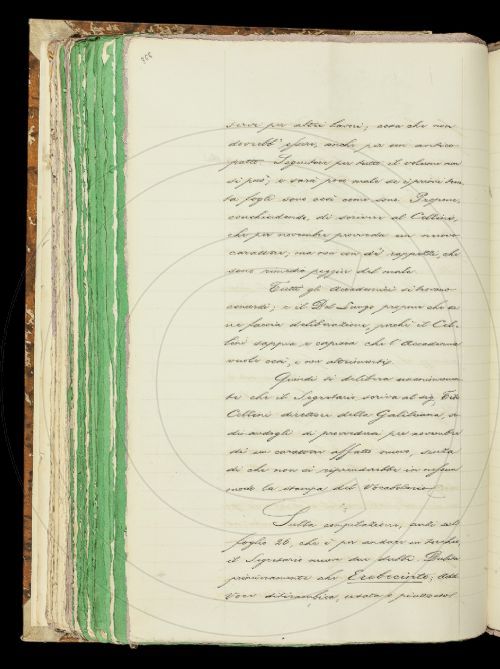 servir per altri lavori; cosa che non
dovrebb' essere, anche per un antico
patto. Seguitare per tutto il volume non
si può; e sarà poco male se i primi ten
ta fogli sono così come sono. Propone,
conchiudendo, di scrivere al Cellini,
che per novembre provveda un nuovo
carattere; ma non con de' rappezzi, che
sono rimedio peggior del male.
Tutti gli Accademici si trovano
concordi; e il Del Lungo propone che se
ne faccia deliberazione, perchè il Cel-
lini sappia e capisca che l'Accademia
vuole così, e non altrimenti.
Quindi si delibera unanimemen
te che il Segretario scriva al sig.
Cellini direttore della Galileiana,
di provvedersi per novembre
di un carattere affatto nuovo, senza
di che non si riprenderebbe in nessun
modo la stampa del Vocabolario.
Sulla compilazione, anzi sul
foglio 26, che è per andare in torchio,
il Segretario muove due dubbi. Dubita
primieramente che Erebecinto,
voce ditirambica, usata